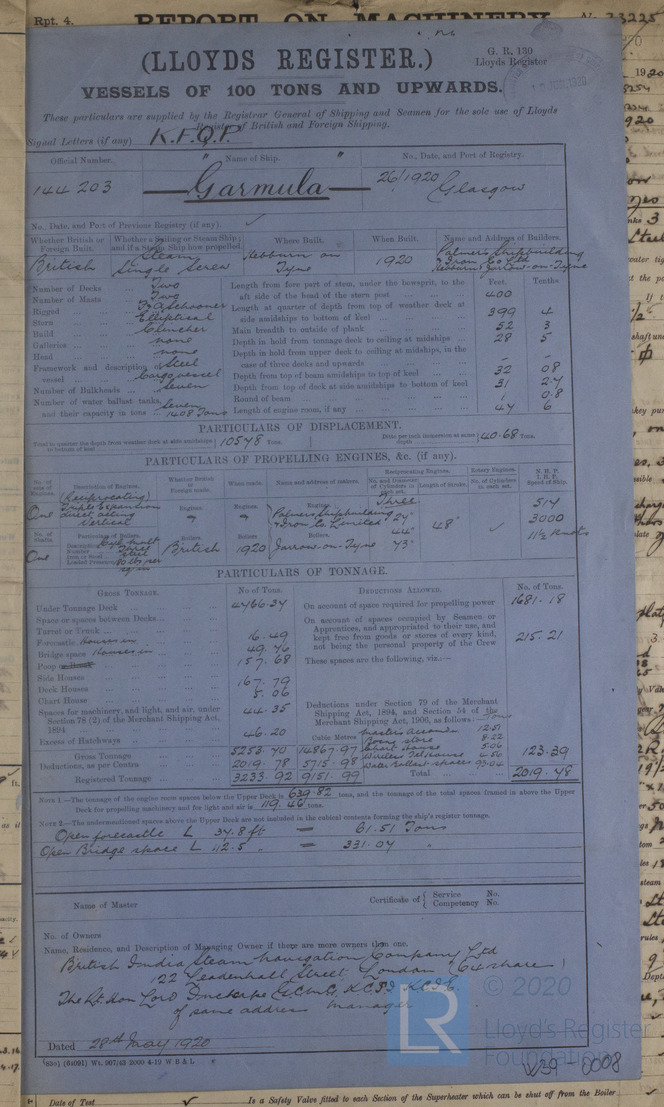 Rpt. 4. REPORT ON MACHINERY No. 23225
(LLOYDS REGISTER.)
G. R. 130
Lloyds Register
VESSELS OF 100 TONS AND UPWARDS.
These particulars are supplied by the Registrar General of Shipping and Seamen for the sole use of Lloyds
Register of British and Foreign Shipping,
Signal Letters (if any) K.F.Q.P.
Official Number. Name of Ship. No., Date, and Port of Registry.
144203 "Garmula" 26/1920 Glasgow
No. Date, and Port of Previous Registry (if any).
Whether British or Foreign Built. Whether a Sailing or Steam Ship; and if a Steam Ship how propelled. Where Built. When Built. Name and Address of Builders.
British Steam Single Screw Hebburn on Tyne 1920 Palmers Shipbuilding & Iron Co Ltd Hebburn Jarrow-on-Tyne
Feet. Tenths.
Number of Decks Two
Number of Masts Two
Rigged Schooner
Stern Elliptical
Build Clencher
Galleries none
Head none
Framework and description of vessel Steel Cargo vessel
Number of Bulkheads Seven
Number of water ballast tanks, and their capacity in tons Seven 1408 Tons
Length from fore part of stem, under the bowsprit, to the aft side of the head of the stern post 400
Length at quarter of depth from top of weather deck at side amidships to bottom of keel 399 4
Main breadth to outside of plank 52 3
Depth in hold from tonnage deck to ceiling at midships 28 5
Depth in hold from upper deck to ceiling at midships, in the case of three decks and upwards - -
Depth from top of beam amidships to top of keel 32 08
Depth from top of deck at side amidships to bottom of keel 31 27
Round of beam 1 0.8
Length of engine room, if any 47 6
PARTICULARS OF DISPLACEMENT.
Total to quarter the depth from weather deck at side amidships to bottom of keel 10578 Tons. Ditto per inch immersion at same depth 40.68 Tons.
PARTICULARS OF PROPELLING ENGINES, &c. (if any).
No. of sets of Engines. Description of Engines. Whether British or Foreign made. When made. Name and address of makers. Reciprocating Engines. Rotary Engines. N.H.P. I.H.P. Speed of Ship.
No. and Diameter of Cylinders in each set. Length of Stroke. No. of Cylinders in each set.
One (Reciprocating) Triple Expansion direct acting Vertical Engines. Engines. Engines. Palmers Shipbuilding & Iron Co Limited Three 27" 44" 73" 48" 514 3000 11½ Knots
No. of Shafts. Particulars of Boilers. Boilers. Boilers. Boilers.
One Description Number Iron or Steel Steel Loaded Pressure British 1920 Jarrow-on-Tyne
PARTICULARS OF TONNAGE.
GROSS TONNAGE. No of Tons. DEDUCTIONS ALLOWED. No. of Tons.
Under Tonnage Deck 4766.37
Space or spaces between Decks
Turret or Trunk
Forecastle Houses in 16.49
Bridge space Houses in 49.76
Poop 157.68
Side Houses
Deck Houses 167.79
Chart House 5.06
Spaces for machinery, and light, and air, under Section 78 (2) of the Merchant Shipping Act, 1894 44.35
Excess of Hatchways 46.20
Cubic Metres
Gross Tonnage 5253.70 14867.97
Deductions, as per Contra 2019.78 5715.98
Registered Tonnage 3233.92 9151.99
On account of space required for propelling power 1681.18
On account of spaces occupied by Seamen or Apprentices, and appropriated to their use, and kept free from goods or stores of every kind, not being the personal property of the Crew 215.21
These spaces are the following, viz.:—
Deductions under Section 79 of the Merchant Shipping Act, 1894, and Section 54 of the Merchant Shipping Act, 1906, as follows: Tons
Masters Accomdn 12.51
Boons. store 8.22
Chart House 5.06
Wireless Telephone 4.56
Water Ballast spaces 93.04
123.39
Total 2019.78
NOTE 1.—The tonnage of the engine room spaces below the Upper Deck is 639.82 tons, and the tonnage of the total spaces framed in above the Upper
Deck for propelling machinery and for light and air is 119.46 tons.
NOTE 2.—The undermentioned spaces above the Upper Deck are not included in the cubical contents forming the ship's register tonnage.
Open forecastle L 34.8 ft = 61.51 Tons
Open Bridge space L 112.5 " = 331.07 "
Name of Master Certificate of { Service No. Competency No.
No. of Owners
Name, Residence, and Description of Managing Owner if there are more owners than one.
British India Steam Navigation Company Ltd
122 Leadenhall Street London (64 shares)
The Rt. Hon Lord Inchcape G.C.M.G, K.C.S.I, K.C.I.E.
of same address manager
Dated 28th May 1920
(830) (64091) Wt. 907/43 2000 4-19 W B & L
© 2020
LR
Lloyd's Register
Foundation
W39-0008
Date of Test Is a Safety Valve fitted to each Section of the Superheater which can be shut off from the Boiler